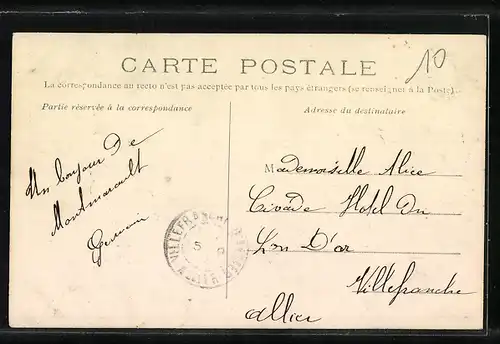 10
CARTE POSTALE
La correspondance au recto n'est pas acceptée par tous les pays étrangers (se renseigner à la Poste).
Partie réservée à la correspondance
Adresse du destinataire
Un bonjour de
Montmarault
Germain
Mademoiselle Alice
Civade Hotel Du
Lon D'or
Villefranche
Allier
VILLEFRANCHE D'ALLIER